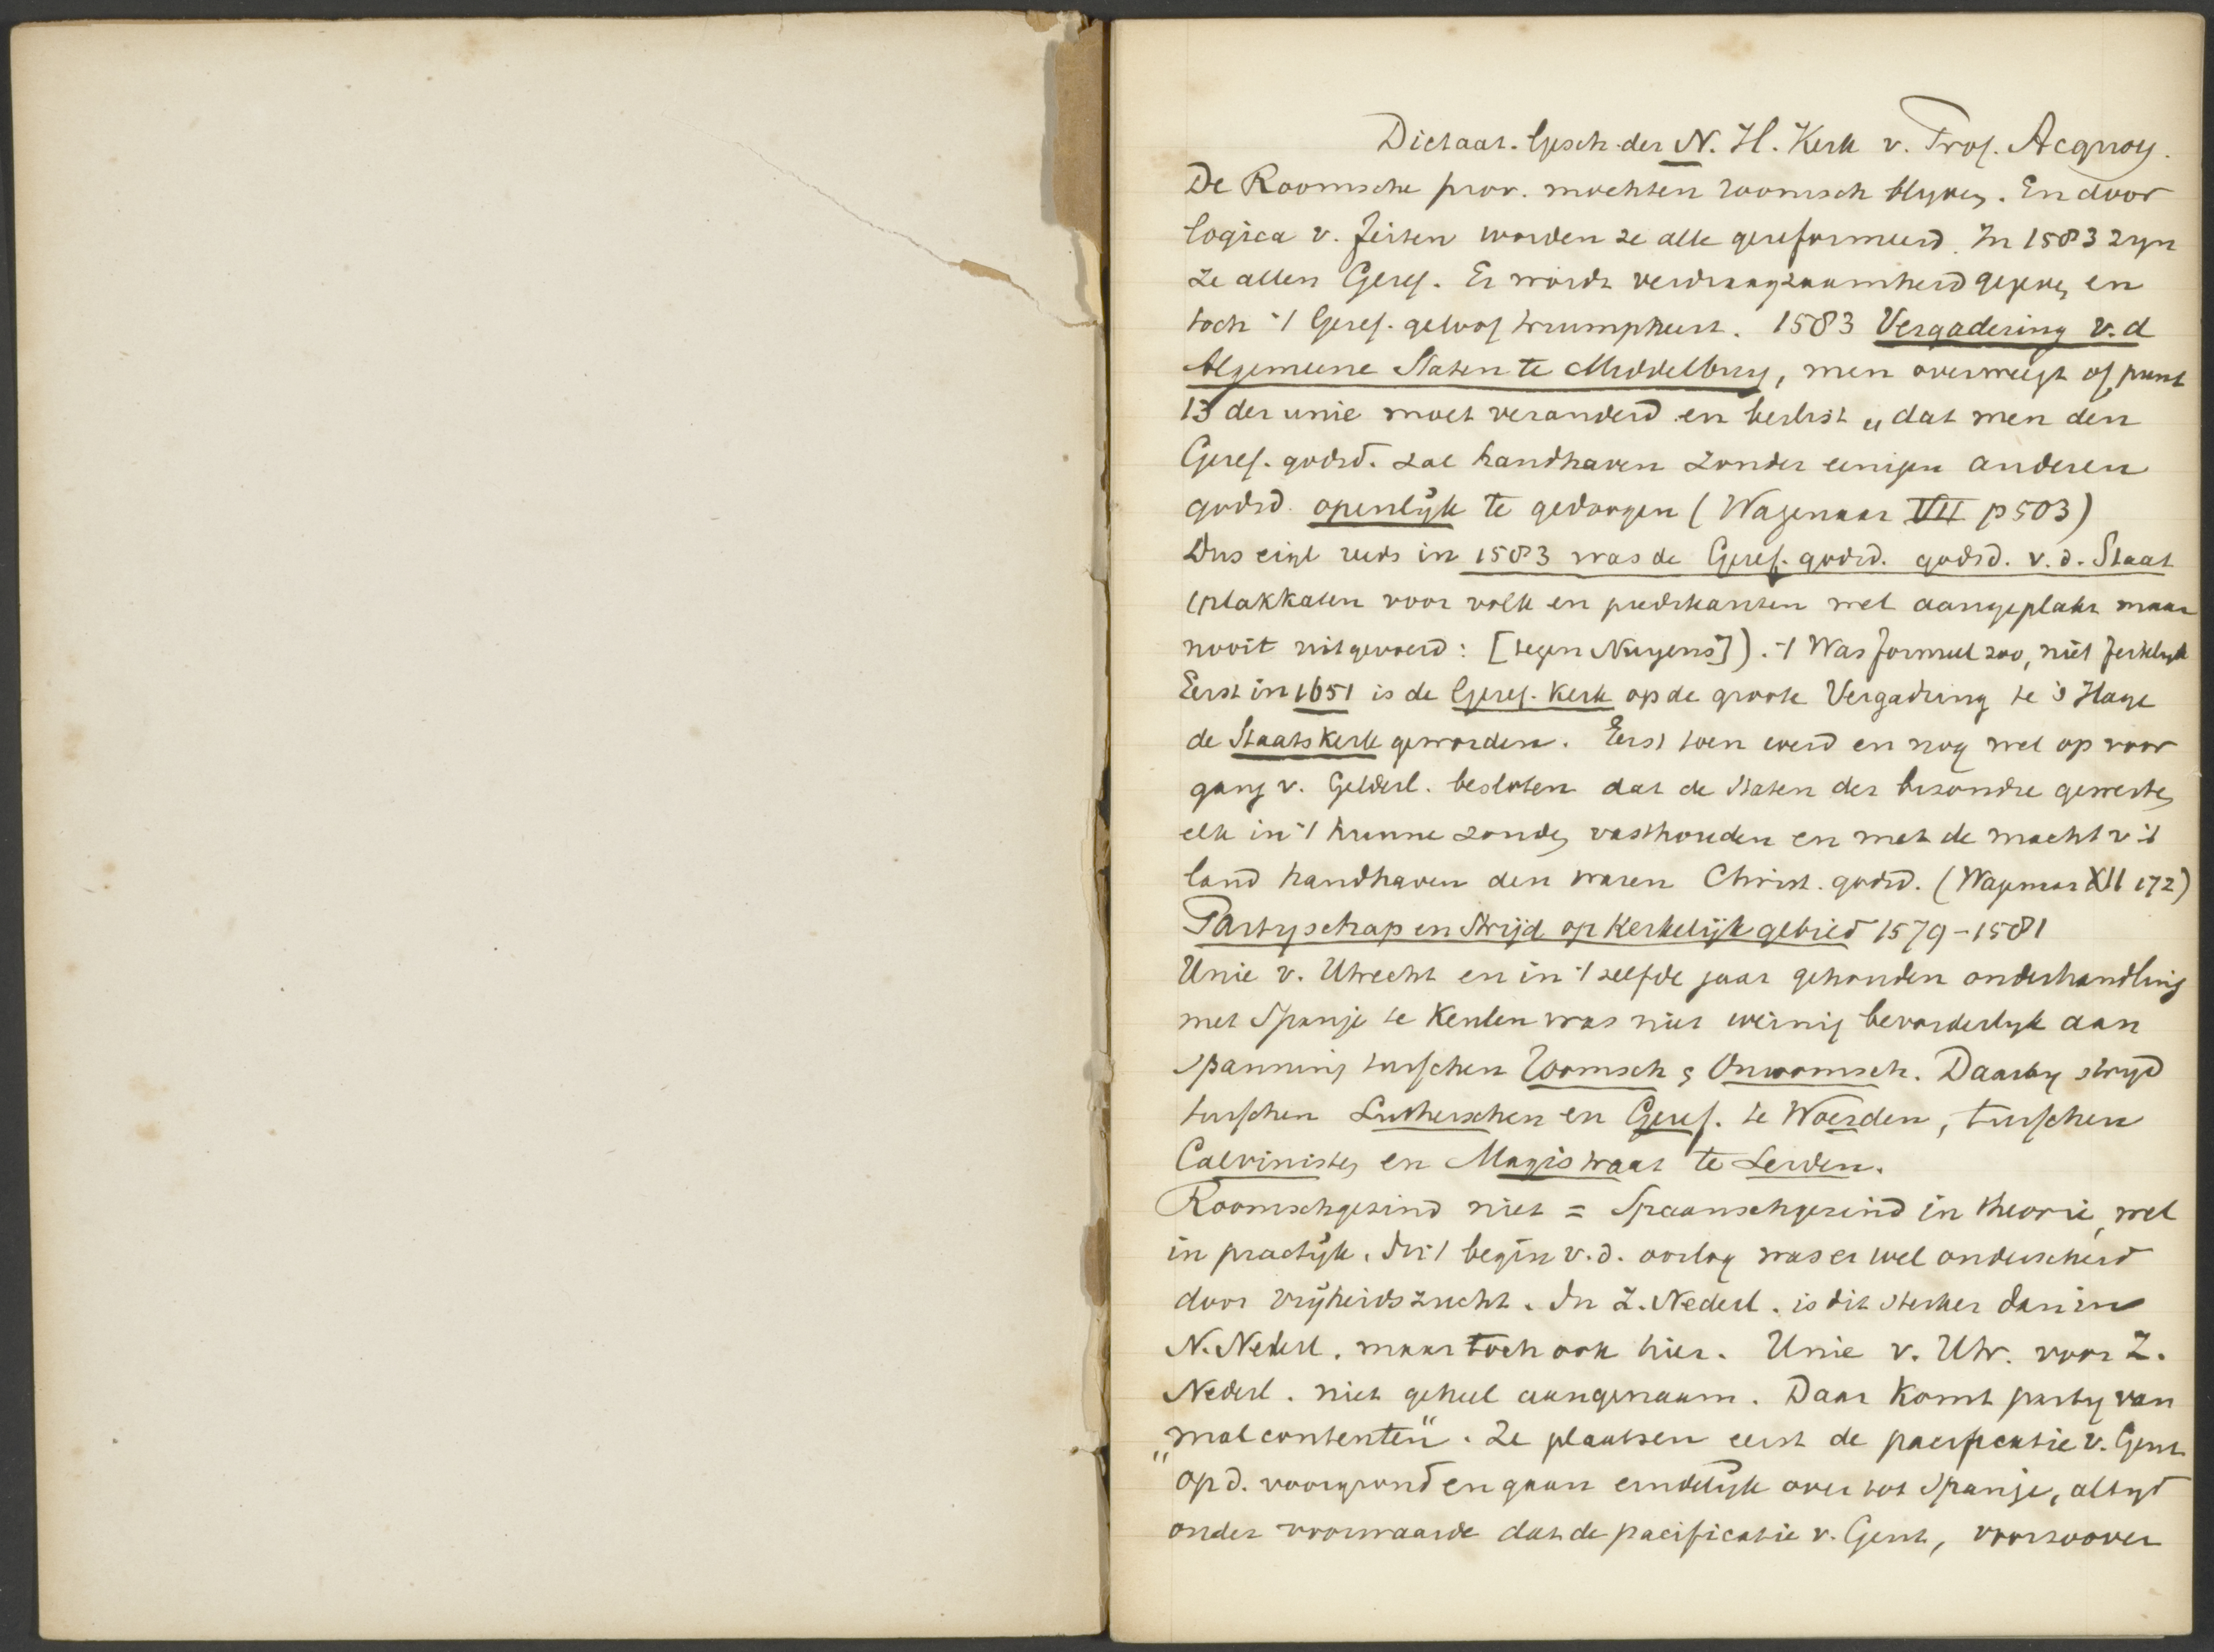 Dictaat. Gesch. der N. H. Kerk v. Prof. Acquoy.
De Roomsche prov. mochten roomsch blyven. En door
logica v. feiten worden ze alle gereformeerd. In 1583 zyn
ze allen Geref. Er wordt verdraagzaamheid gegeven en
toch 't Geref. geloof triumpheert. 1583 Vergadering v. d
Algemeene Staten te Middelburg, men overweegt of punt
13 der unie moet veranderd en beslist „dat men den
Geref. godsd. zal handhaven zonder eenigen anderen
godsd. openlijk te gedoogen (Wagenaar VII p 503)
Dus eigl reeds in 1583 was de Geref. godsd. godsd. v. d. Staat
(plakkaten voor volk en predikanten wel aangeplakt maar
nooit uitgevoerd: [tegen Nuyens]). 't Was formeel zoo, niet feitelyk
Eerst in 1651 is de Geref. Kerk op de groote Vergadring te 's Hage
de Staatskerk geworden. Eerst toen werd en nog wel op voor
gang v. Gelderl. besloten dat de Staten der bizondre gewesten
elk in 't hunne zouden vasthouden en met de macht v 't
land handhaven den waren Christ. godsd. (Wagenaar XII 172)
Partyschap en Strijd op Kerkelijk gebied 1579-1581
Unie v. Utrecht en in 't zelfde jaar gehouden onderhandling
met Spanje te Keulen was niet weinig bevorderlyk aan
spanning tusschen Roomsch & Onroomsch. Daarby stryd
tusschen Lutherschen en Geref. te Woerden, tusschen
Calvinisten en Magistraat te Leiden.
Roomschgezind niet = Spaanschgezind in theorie, wel
in practijk. In 't begin v. d. oorlog was er wel onderscheid
door vrijheidszucht. In Z. Nederl. is dit sterker dan in
N. Nederl. maar toch ook hier. Unie v. Utr. voor Z.
Nederl. niet geheel aangenaam. Daar Komt party van
„malcontenten". Ze plaatsen eerst de pacificatie v. Gent
op d. voorgrond en gaan eindelijk over tot Spanje, altyd
onder voorwaarde dat de pacificatie v. Gent, voorzoover